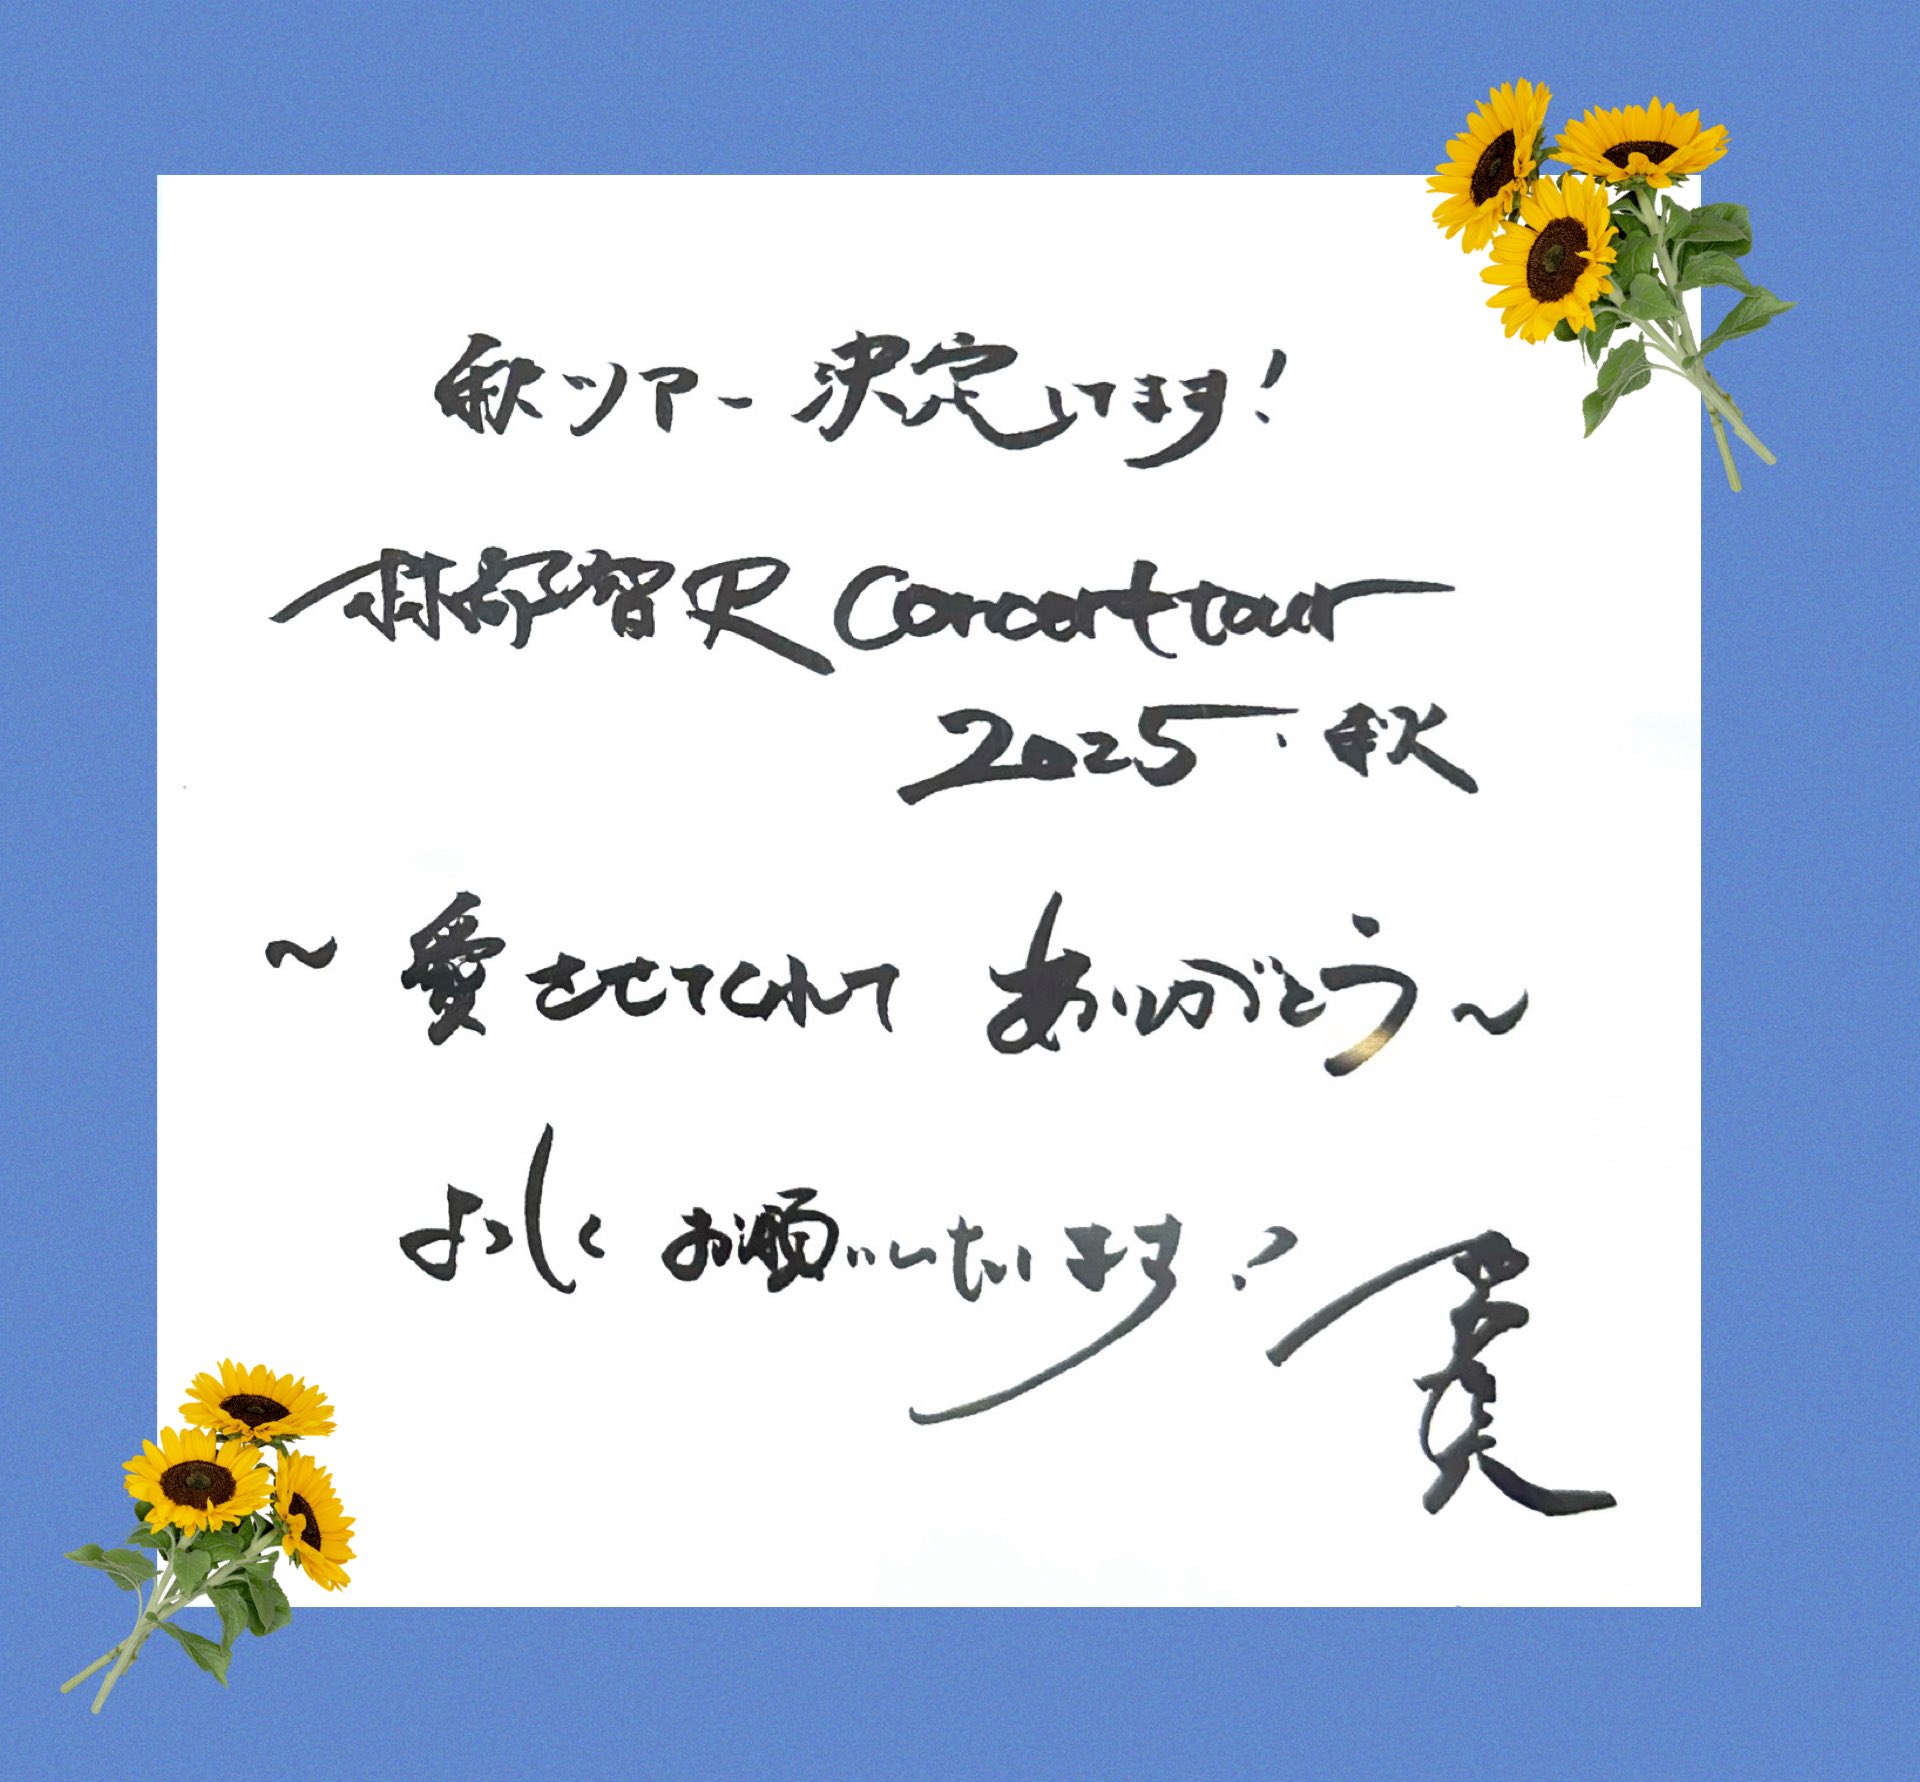 秋ツアー決定してます!
村部智史 Concert tour
2025.秋
~愛させてくれて ありがとう~
よろしくお願いいたします!